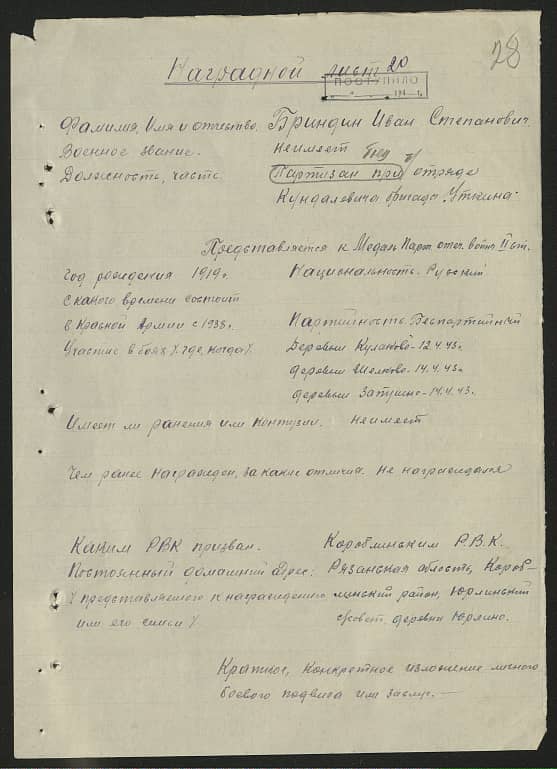 28
Наградной лист 20
ПОСТУПИЛО
Фамилия, Имя и отчество. Бриндин Иван Степанович.
Военное звание. Неимеет
Должность, часть. Партизан при отряде
Кундалевича бригады Уткина.
Представляется к Медаль Парт. отеч. войны II ст.
Год рождения 1919г. Национальность. Русский
С каного времени состоит
в Красной Армии с 1938г. Партийность. Беспартийный
Участие в боях X где, когда X. Деревни Кулаково - 12.4.43г.
деревни Шелково - 14.4.43г.
деревни Затушно - 14.4.43.
Имеет ли ранения или контузии. неимеет
Чем ранее награжден, за какие отличия. Не награждался
Каким РВК призван. Кораблинским Р.В.К.
Постоянный домашний адрес: Рязанская область, Кораб-
X представляемого к награждению линский район, Юрлинский
или его семьи X с/совет. деревни Юрлино.
Краткое, конкретное изложение личного
боевого подвига или заслуг. —